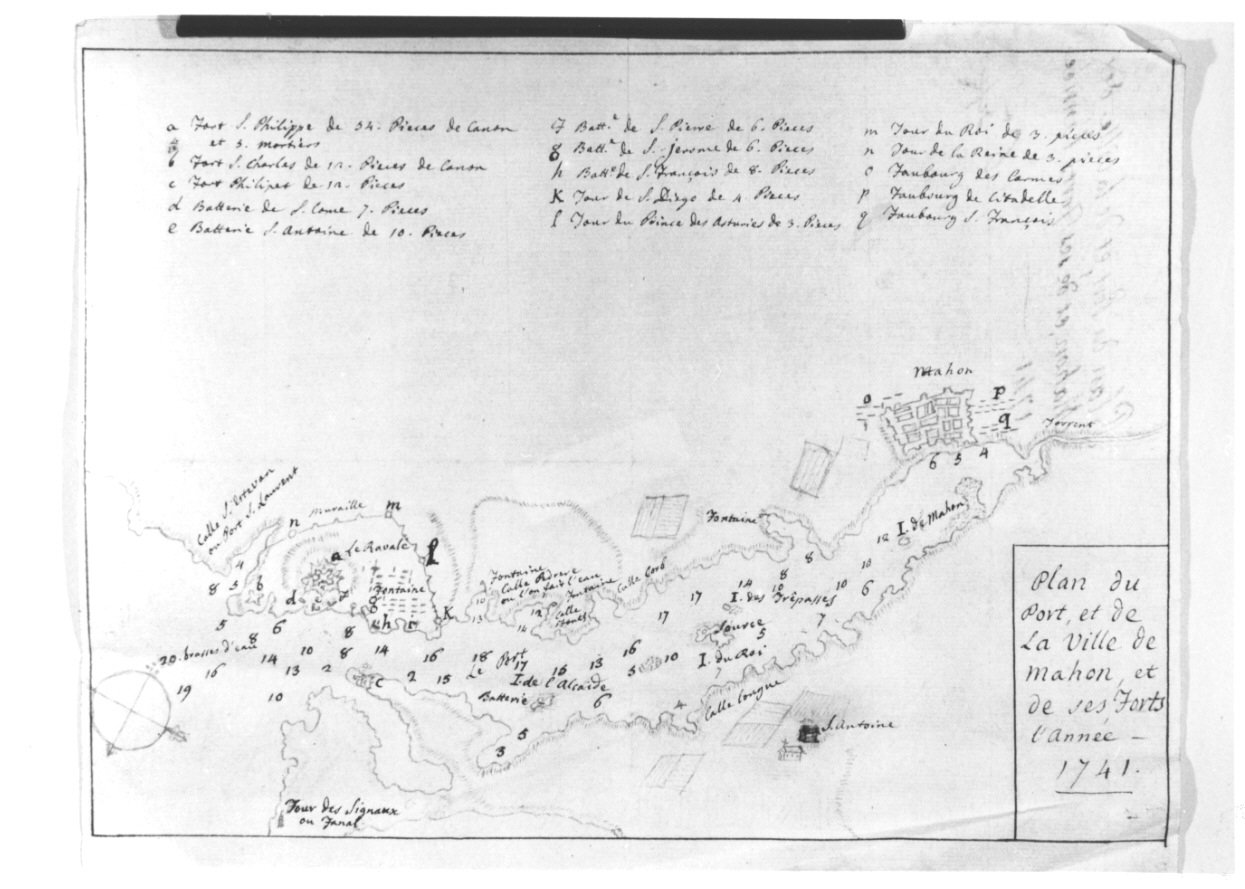 a Fort S. Philippe de 54. Pieces de Canon
et 5. mortiers
b Fort S. Charles de 12. Pieces de Canon
c Fort Philipet de 12. Pieces
d Batterie de S. Come 7. Pieces
e Batterie S. Antoine de 10. Pieces
f Batt.e de S. Pierre de 6. Pieces
g Batt.e de S. Jerosme de 6. Pieces
h Batt.e de S. François de 8. Pieces
K Tour de S. Diego de 4 Pieces
l Tour du Prince des Asturies de 3. Pieces
m Tour du Roi de 3. pieces
n Tour de la Reine de 3. pieces
o Faubourg des Carmes
p Faubourg de Citadelle
q Faubourg S. François
Mahon
o
p
q
Torrent
6 5 4
I. de Mahon
12
10
Calle S. Estevan
ou Port S. Laurent
n
muraille
m
a
Le Ravale
l
Fontaine
8 5 4 b
d e f
g
h
K
Fontaine
Calle Pedrere
ou l'on fait l'eau
10
13
14
12
Fontaine
Calle
Calle Corb
Fontaine
8
8
10
14
I. des Trêpasses
10
6
7
17
17
Source
5
I. du Roi
7
5
6
8
10
8
8
14
16
18
Le Port
17
16
13
16
5
10
20. brasses d'eau
19
16
14
13
10
2
c
2
15
I. de l'Alcaide
Batterie
6
4
Calle Longue
3
5
S. Antoine
Tour des Signaux
ou Fanal
Plan du
Port, et de
La Ville de
Mahon, et
de ses Forts
l'Année –
1741.